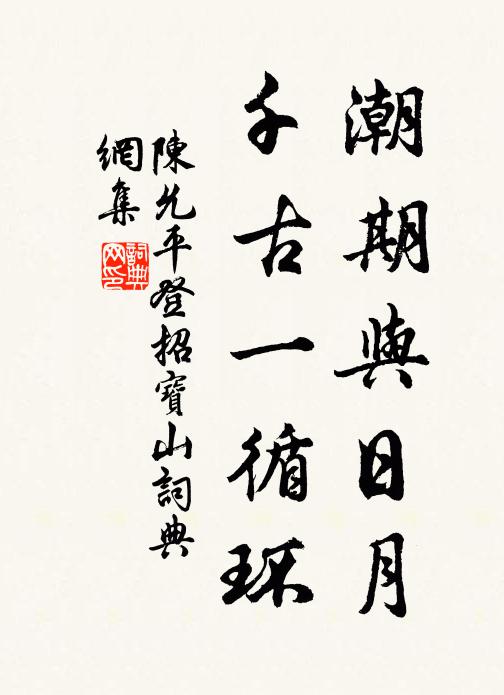 潮期與日月
千古一循环
陳允平登招寶山詞典
網集
詞典网印